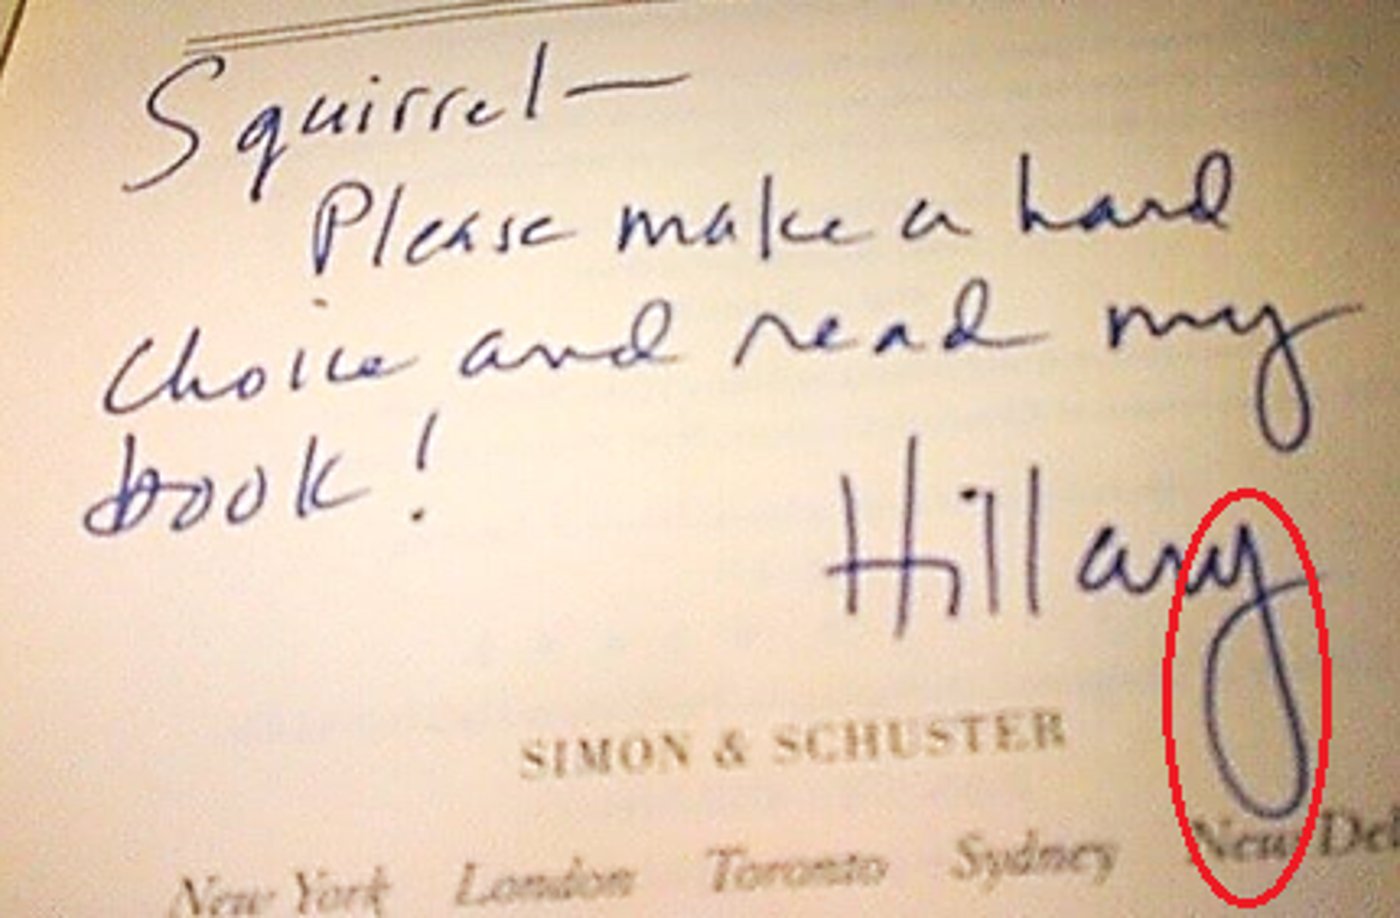 Squirrel—
Please make a hard
choice and read my
book!
Hillary
SIMON & SCHUSTER
New York London Toronto Sydney New Del